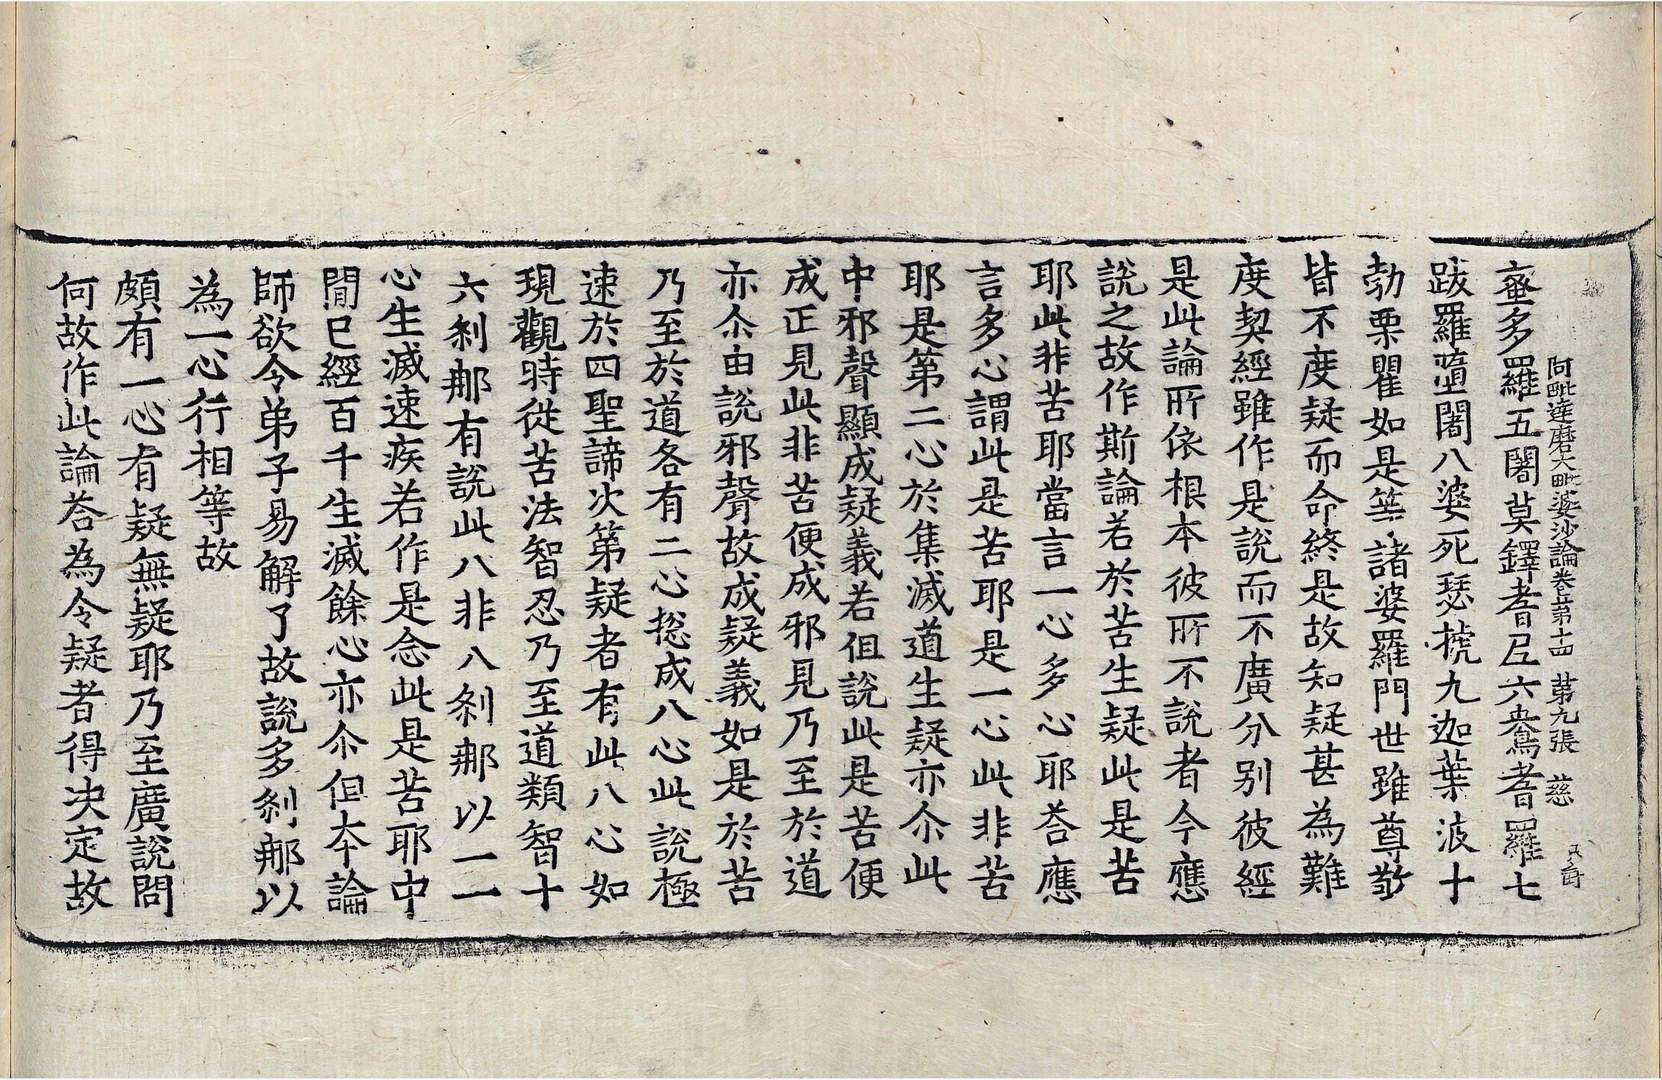 阿毗達磨大毗婆沙論卷第十四 第九張 慈
蜜多羅五闍莫鐸耆𡰱六褰耆羅七
跋羅墮闍八婆死瑟搋九迦葉波十
勃栗瞿如是等諸婆羅門世雖尊敬
皆不度疑而命終是故知疑甚為難
度契經雖作是說而不廣分別彼經
是此論所依根本彼所不說者今應
說之故作斯論若於苦生疑此是苦
耶此非苦耶當言一心多心耶荅應
言多心謂此是苦耶是一心此非苦
耶是第二心於集滅道生疑亦尒此
中邪聲顯成疑義若但說此是苦便
成正見此非苦便成邪見乃至於道
亦尒由說邪聲故成疑義如是於苦
乃至於道各有二心揔成八心此說極
速於四聖諦次第疑者有此八心如
現觀時從苦法智忍乃至道類智十
六剎那有說此八非八剎那以一一
心生滅速疾若作是念此是苦耶中
閒已經百千生滅餘心亦尒但本論
師欲令弟子易解了故說多剎那以
為一心行相等故
頗有一心有疑無疑耶乃至廣說問
何故作此論荅為令疑者得決定故